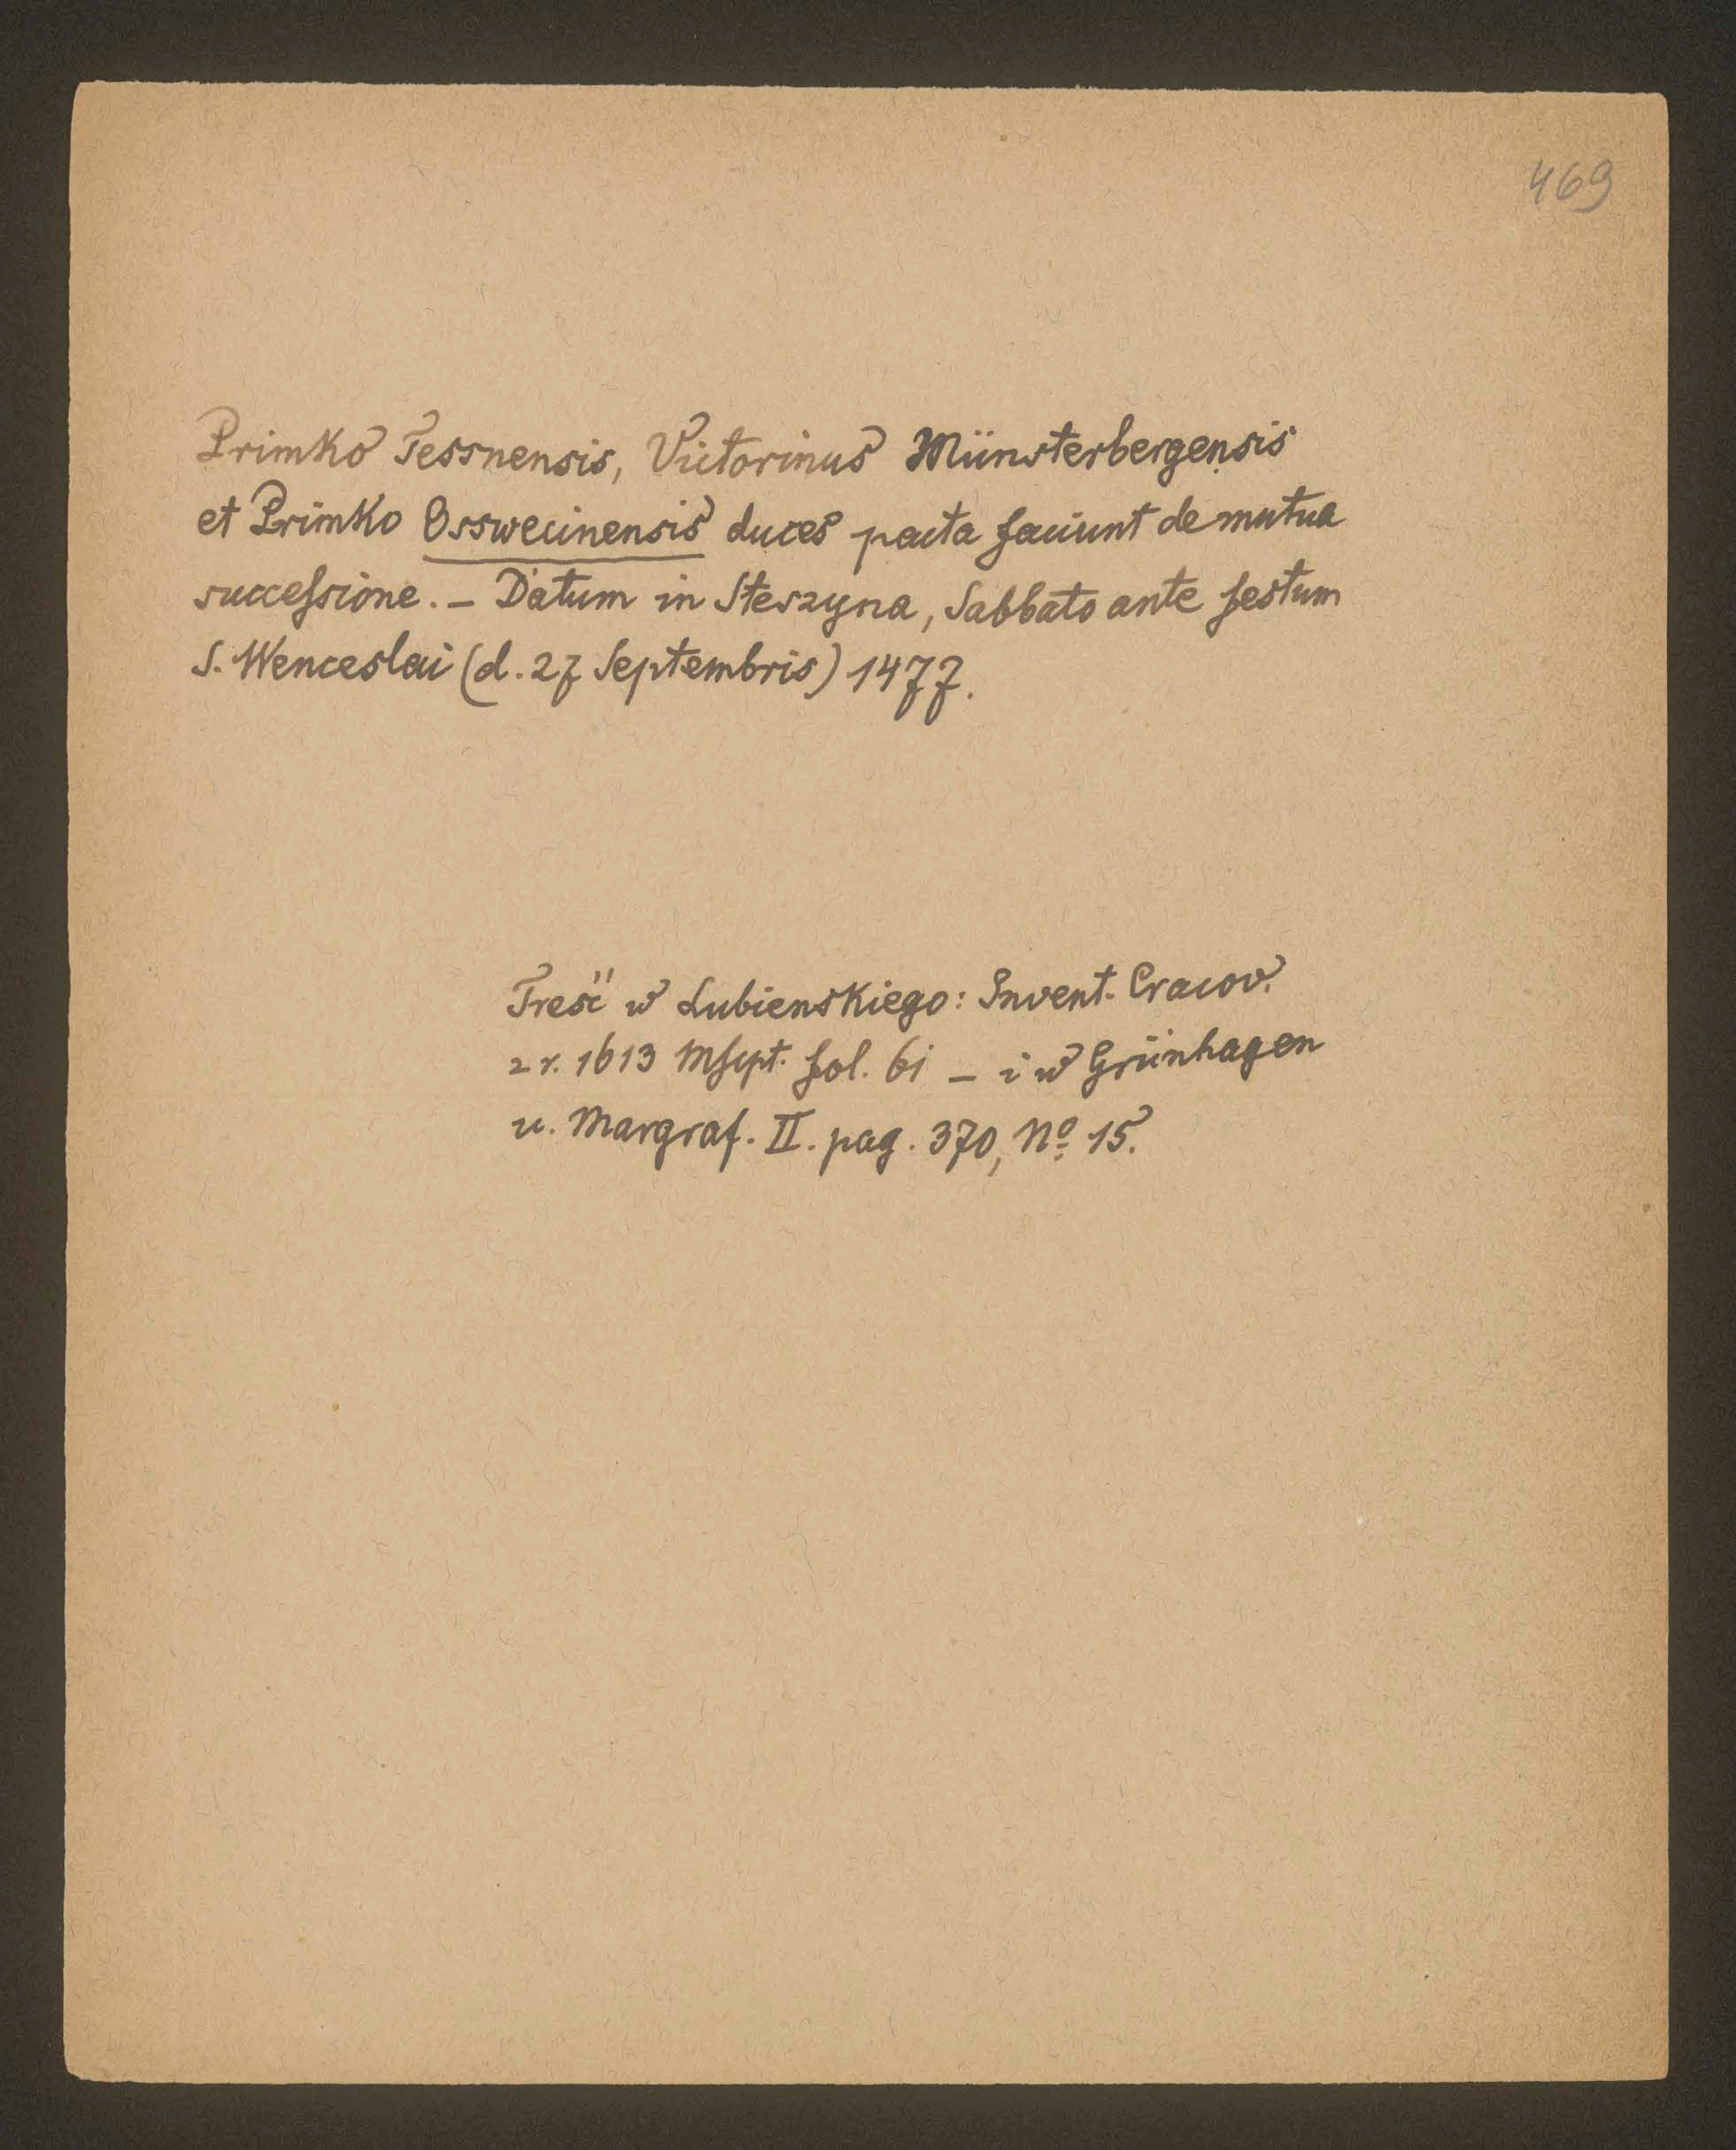 469
Primko Tessnensis, Victorinus Münsterbergensis
et Primko Osswecinensis duces pacta faciunt de mutua
successione. – Datum in Steszyna, Sabbato ante festum
S. Wenceslai (d. 27 Septembris) 1477.
Treść w Lubienskiego: Invent. Cracov.
z r. 1613 Mscpt. fol. 61 – i w Grünhagen
u. Margraf. II. pag. 370, No 15.